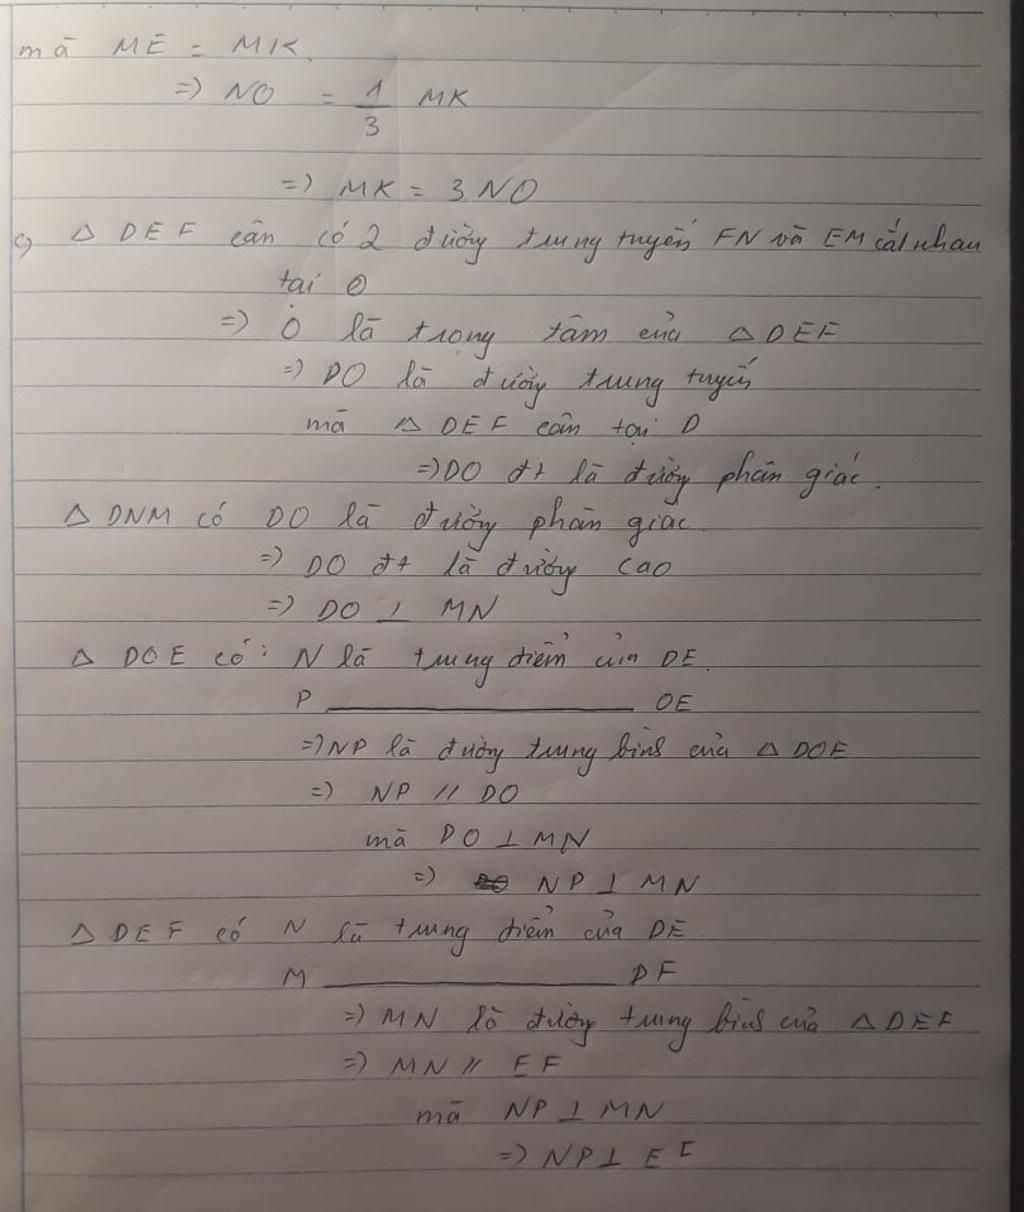 mà ME = MK.
=> NO = 1/3 MK
=> MK = 3 NO
c, Δ DEF cân có 2 đường trung tuyến FN và EM cắt nhau
tại O
=> O là trọng tâm của Δ DEF
=> DO là đường trung tuyến
mà Δ DEF cân tại D
=> DO đt là đường phân giác.
Δ DNM có DO là đường phân giác.
=> DO đt là đường cao
=> DO ⊥ MN
Δ DOE có: N là trung điểm của DE.
P ____________ OE
=> NP là đường trung bình của Δ DOE
=> NP // DO
mà DO ⊥ MN
=> NP ⊥ MN
Δ DEF có N là trung điểm của DE.
M ____________ DF
=> MN là đường trung bình của Δ DEF
=> MN // EF
mà NP ⊥ MN
=> NP ⊥ EF